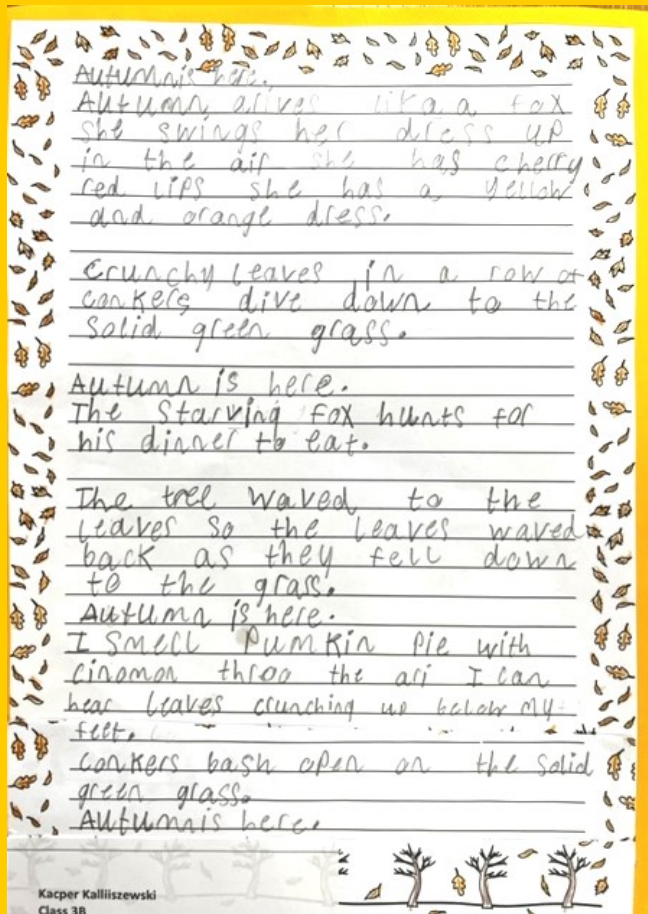 Autumnis here.
Autumn arives lika a fox
she swings her dress up
in the air she has cherry
red lips she has a yellow
and orange dress.
Crunchy leaves in a row of
conkers dive down to the
solid green grass.
Autumn is here.
The starving fox hunts for
his dinner to eat.
The tree waved to the
leaves so the leaves waved
back as they fell down
to the grass.
Autumn is here.
I smell Pumkin Pie with
cinomon throo the ari I can
hear leaves crunching up below my
feet.
conkers bash open on the solid
green grass.
Autumnis here.
Kacper Kalliiszewski
Class 3B